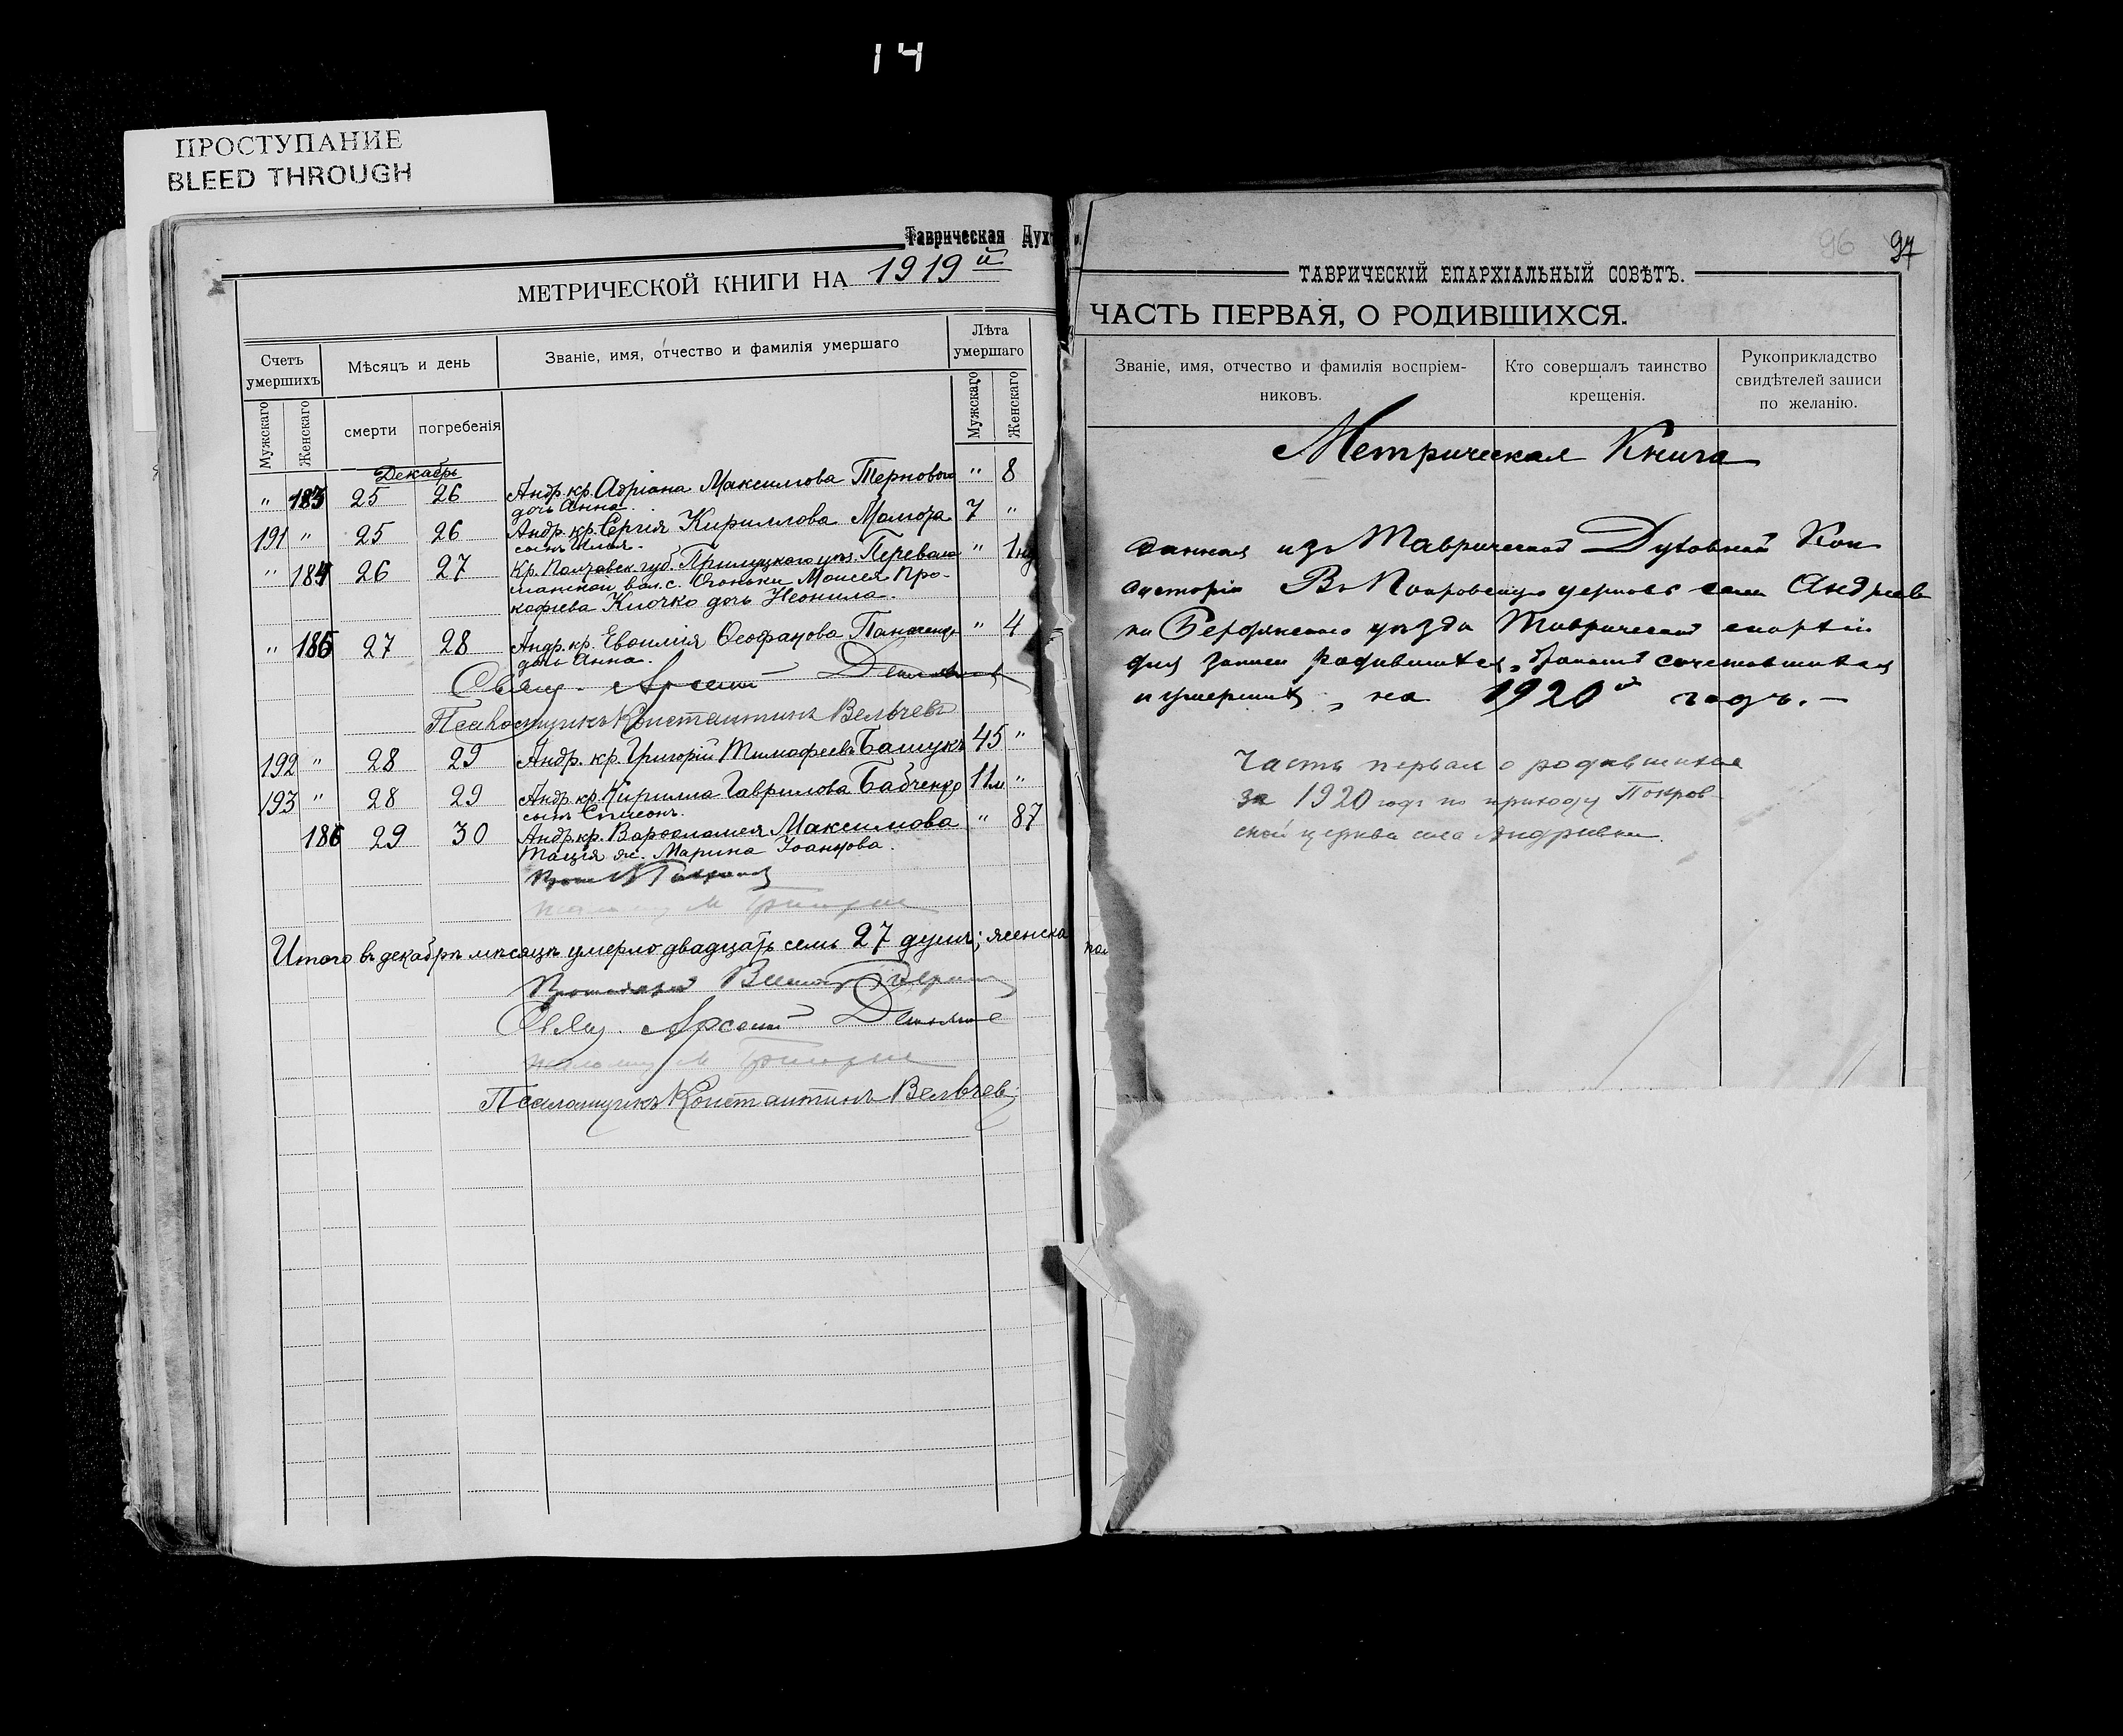 14
ПРОСТУПАНИЕ
BLEED THROUGH
Таврическая Дух
МЕТРИЧЕСКОЙ КНИГИ НА 1919й
Счетъ умершихъ
Мѣсяцъ и день
Званіе, имя, отчество и фамилія умершаго
Лѣта умершаго
Мужскаго
Женскаго
смерти
погребенія
Мужскаго
Женскаго
Декабрь
" 183 25 26 Андр. кр. Адріана Максимова Тернового " 8
дочь Анна.
191 " 25 26 Андр. кр. Сергія Кириллова 7 "
сынъ Илья.
" 184 26 27 Кр. Полтавск. губ. Прилуцкого уѣз. "
вол. с. Моисея Про-
кофіева Клочко дочь Неонила.
" 185 27 28 Андр. кр. Евѳимія Ѳеофанова " 4
дочь Анна.
Свящ. Арсеній
Псаломщикъ Константинъ Вельчевъ
192 " 28 29 Андр. кр. Григорій Тимофеевъ Башукъ 45 "
193 " 28 29 Андр. кр. Кирилла Гаврилова Бабченко 11м "
сынъ Симеонъ.
186 29 30 Андр. кр. Варѳоломея Максимова " 87
ж. Марина Іоаннова.
Итого въ декабрѣ мѣсяцѣ умерло двадцать семь 27 душъ; женска
пол
Свящ. Арсеній
Псаломщикъ Константинъ Вельчев
96 97
ТАВРИЧЕСКІЙ ЕПАРХІАЛЬНЫЙ СОВѢТЪ.
ЧАСТЬ ПЕРВАЯ, О РОДИВШИХСЯ.
Званіе, имя, отчество и фамилія воспріем-
никовъ.
Кто совершалъ таинство
крещенія.
Рукоприкладство
свидѣтелей записи
по желанію.
Метрическая Книга
данная изъ Таврической Духовной Кон
систоріи Въ Покровскую церковь села Андреев
ки Бердянскаго уѣзда Таврической епархіи
для записи родившихся, бракомъ сочетавшихся
и умершихъ, на 1920й годъ. —
Часть первая о родившихся
за 1920 годъ по приходу Покров
ской церкви села Андреевки.